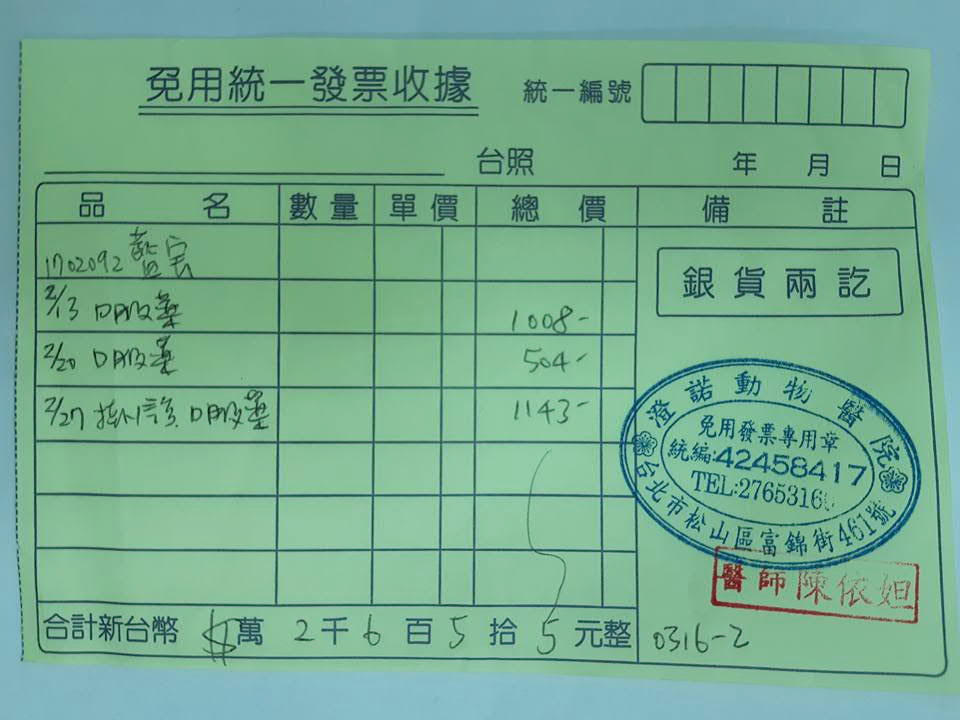 免用統一發票收據
統一編號
台照
年 月 日
品 名 數量 單價 總價 備註
1702092 藍宝
2/13 口服藥 1008-
2/20 口服藥 504-
2/27 掛號 口服藥 1143-
銀貨兩訖
澄諾動物醫院
免用發票專用章
統編:42458417
TEL:2765316
台北市松山區富錦街461號
醫師 陳依妲
合計新台幣 $ 萬 2 千 6 百 5 拾 5 元整
0316-2